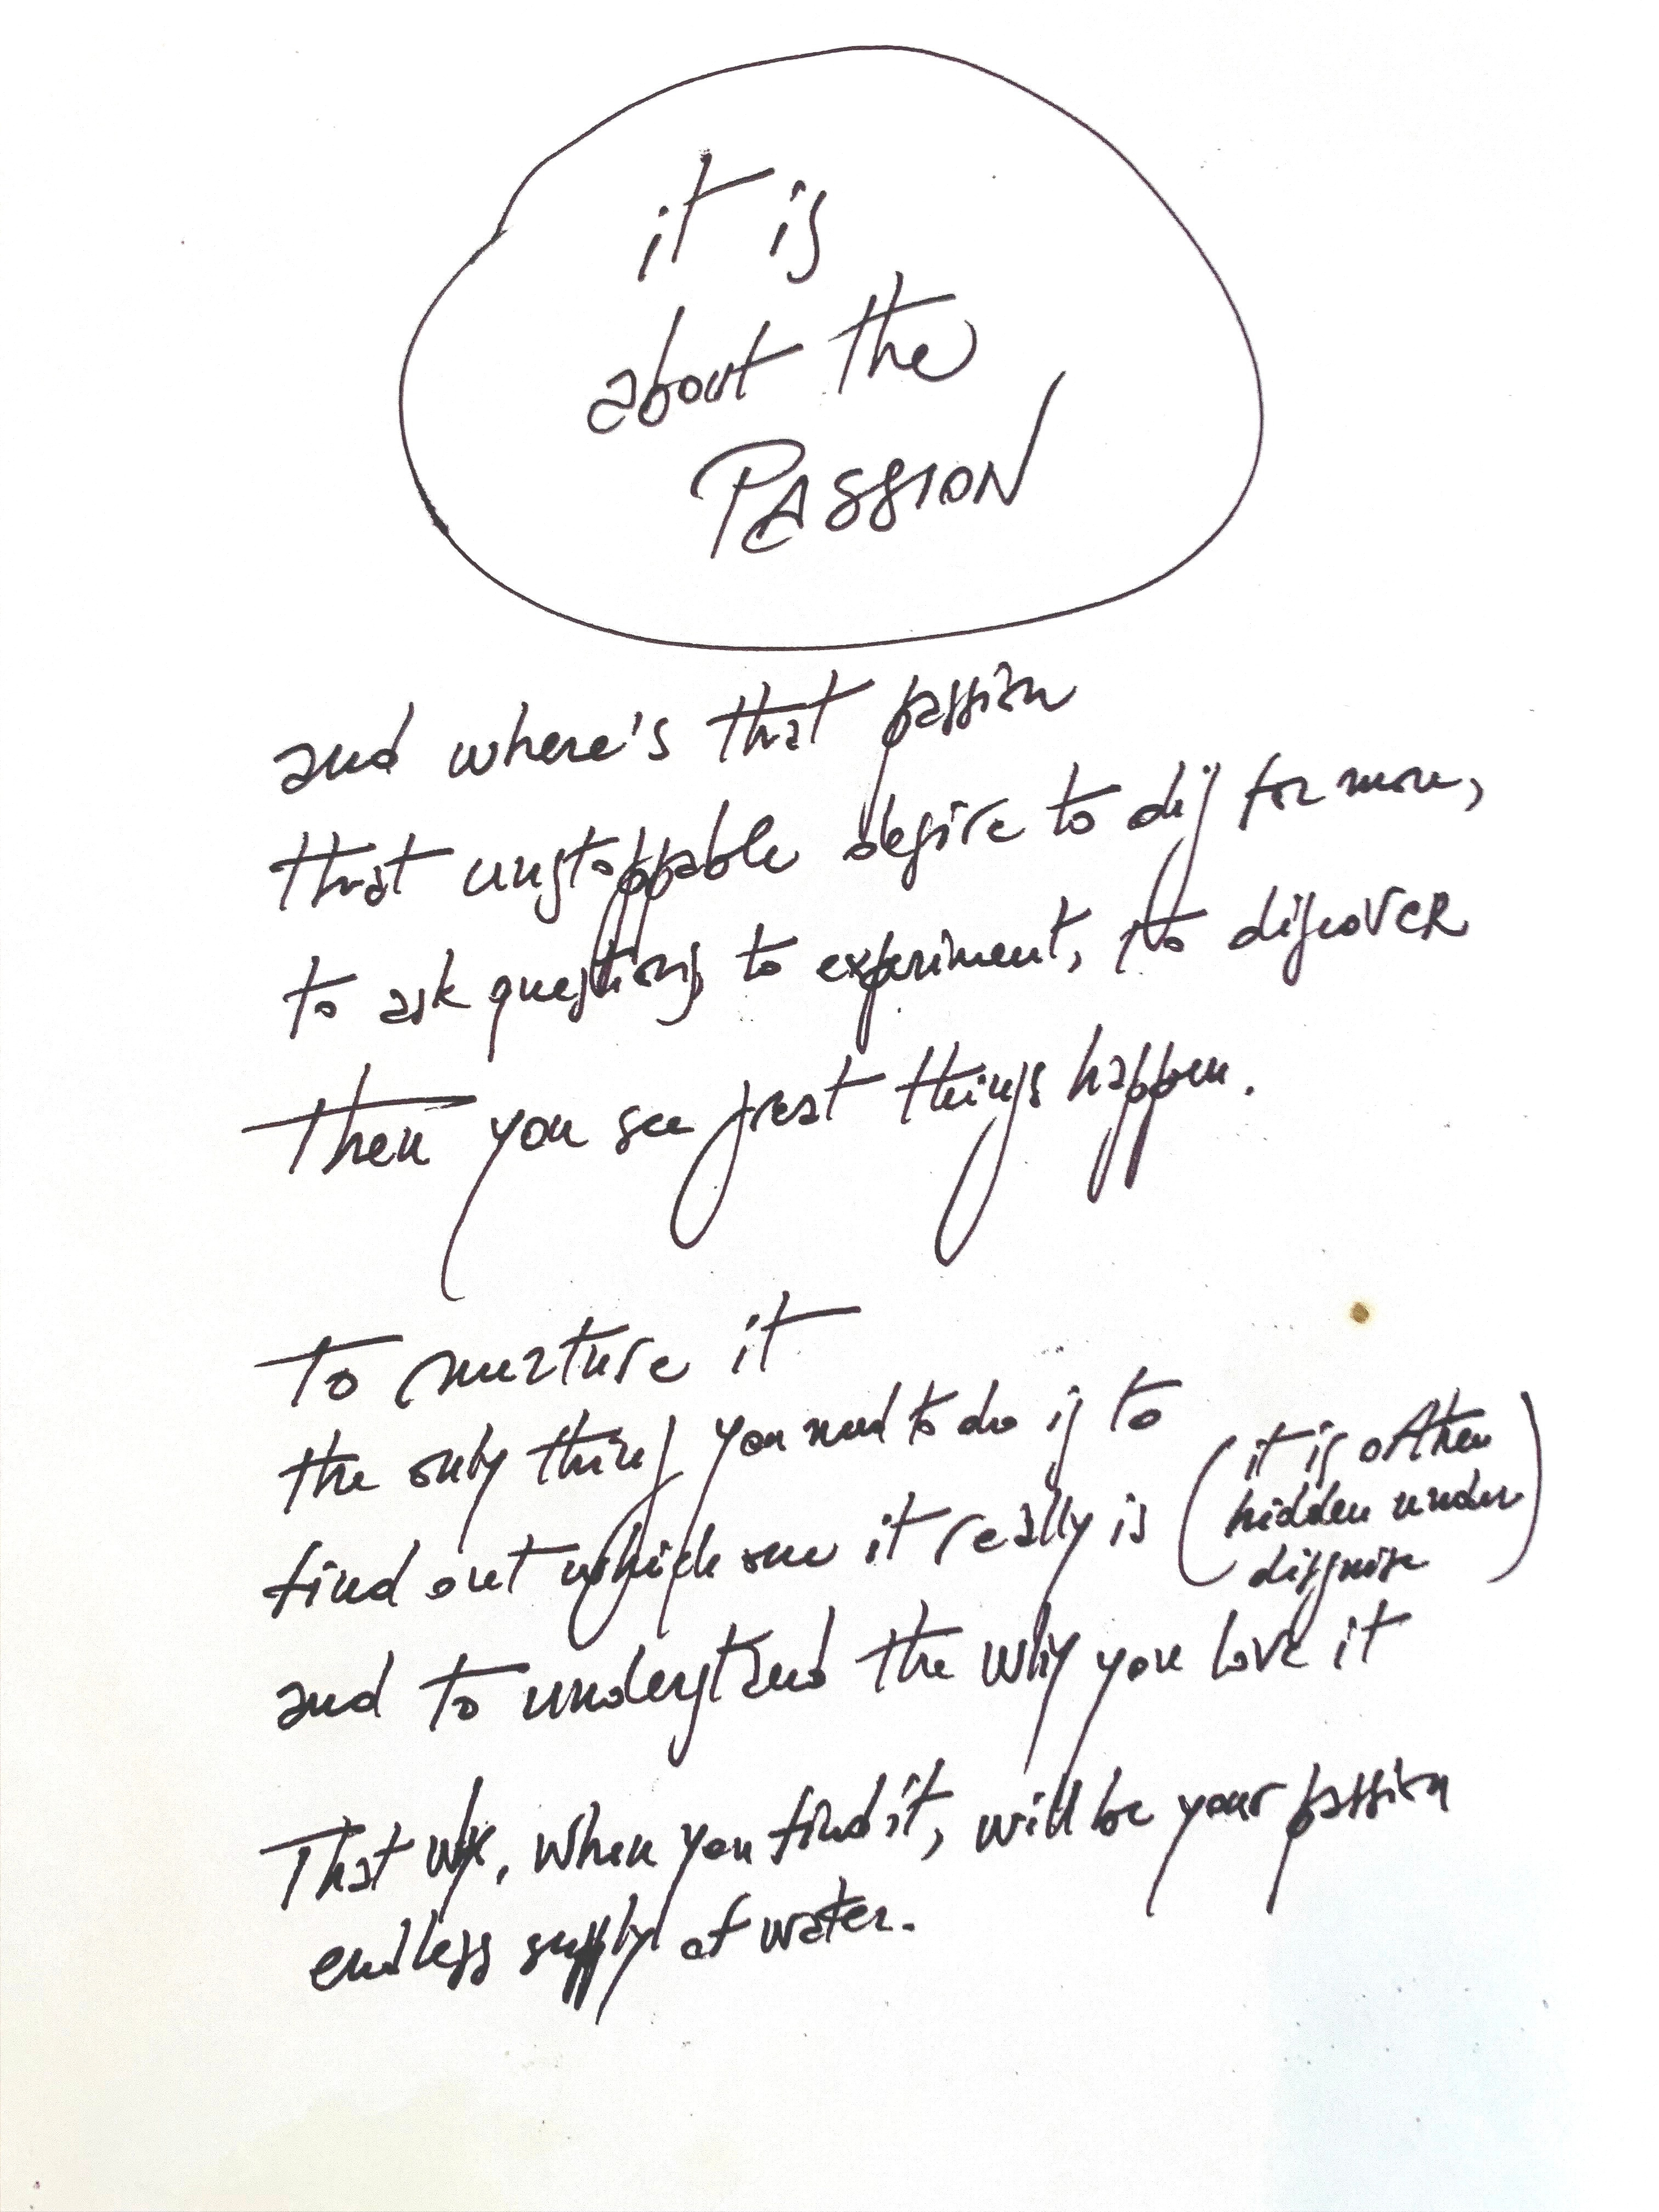 it is
about the
PASSION
and where's that passion
that unstoppable desire to dig for more,
to ask questions, to experiment, to discover
Then you see great things happen.
To nurture it
the only thing you need to do is to
find out which one it really is (it is often
hidden under
disguise)
and to understand the why you love it
That why, when you find it, will be your passion
endless supply of water.